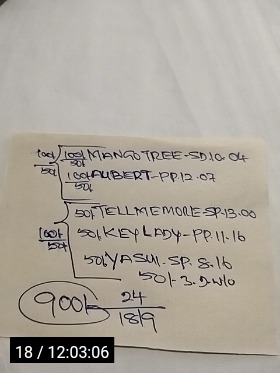 100/- 100/- MANGO TREE-SD10.04
50/- 50/-
100/- AUBERT-PP.12.07
50/-
50/- TELLMEMORE-SP.13.00
100/- 50/- KEYLADY-PP.11.16
50/-
50/- YASUI.SP.8.16
50/-3.2
900/- 24
18/9
18 / 12:03:06